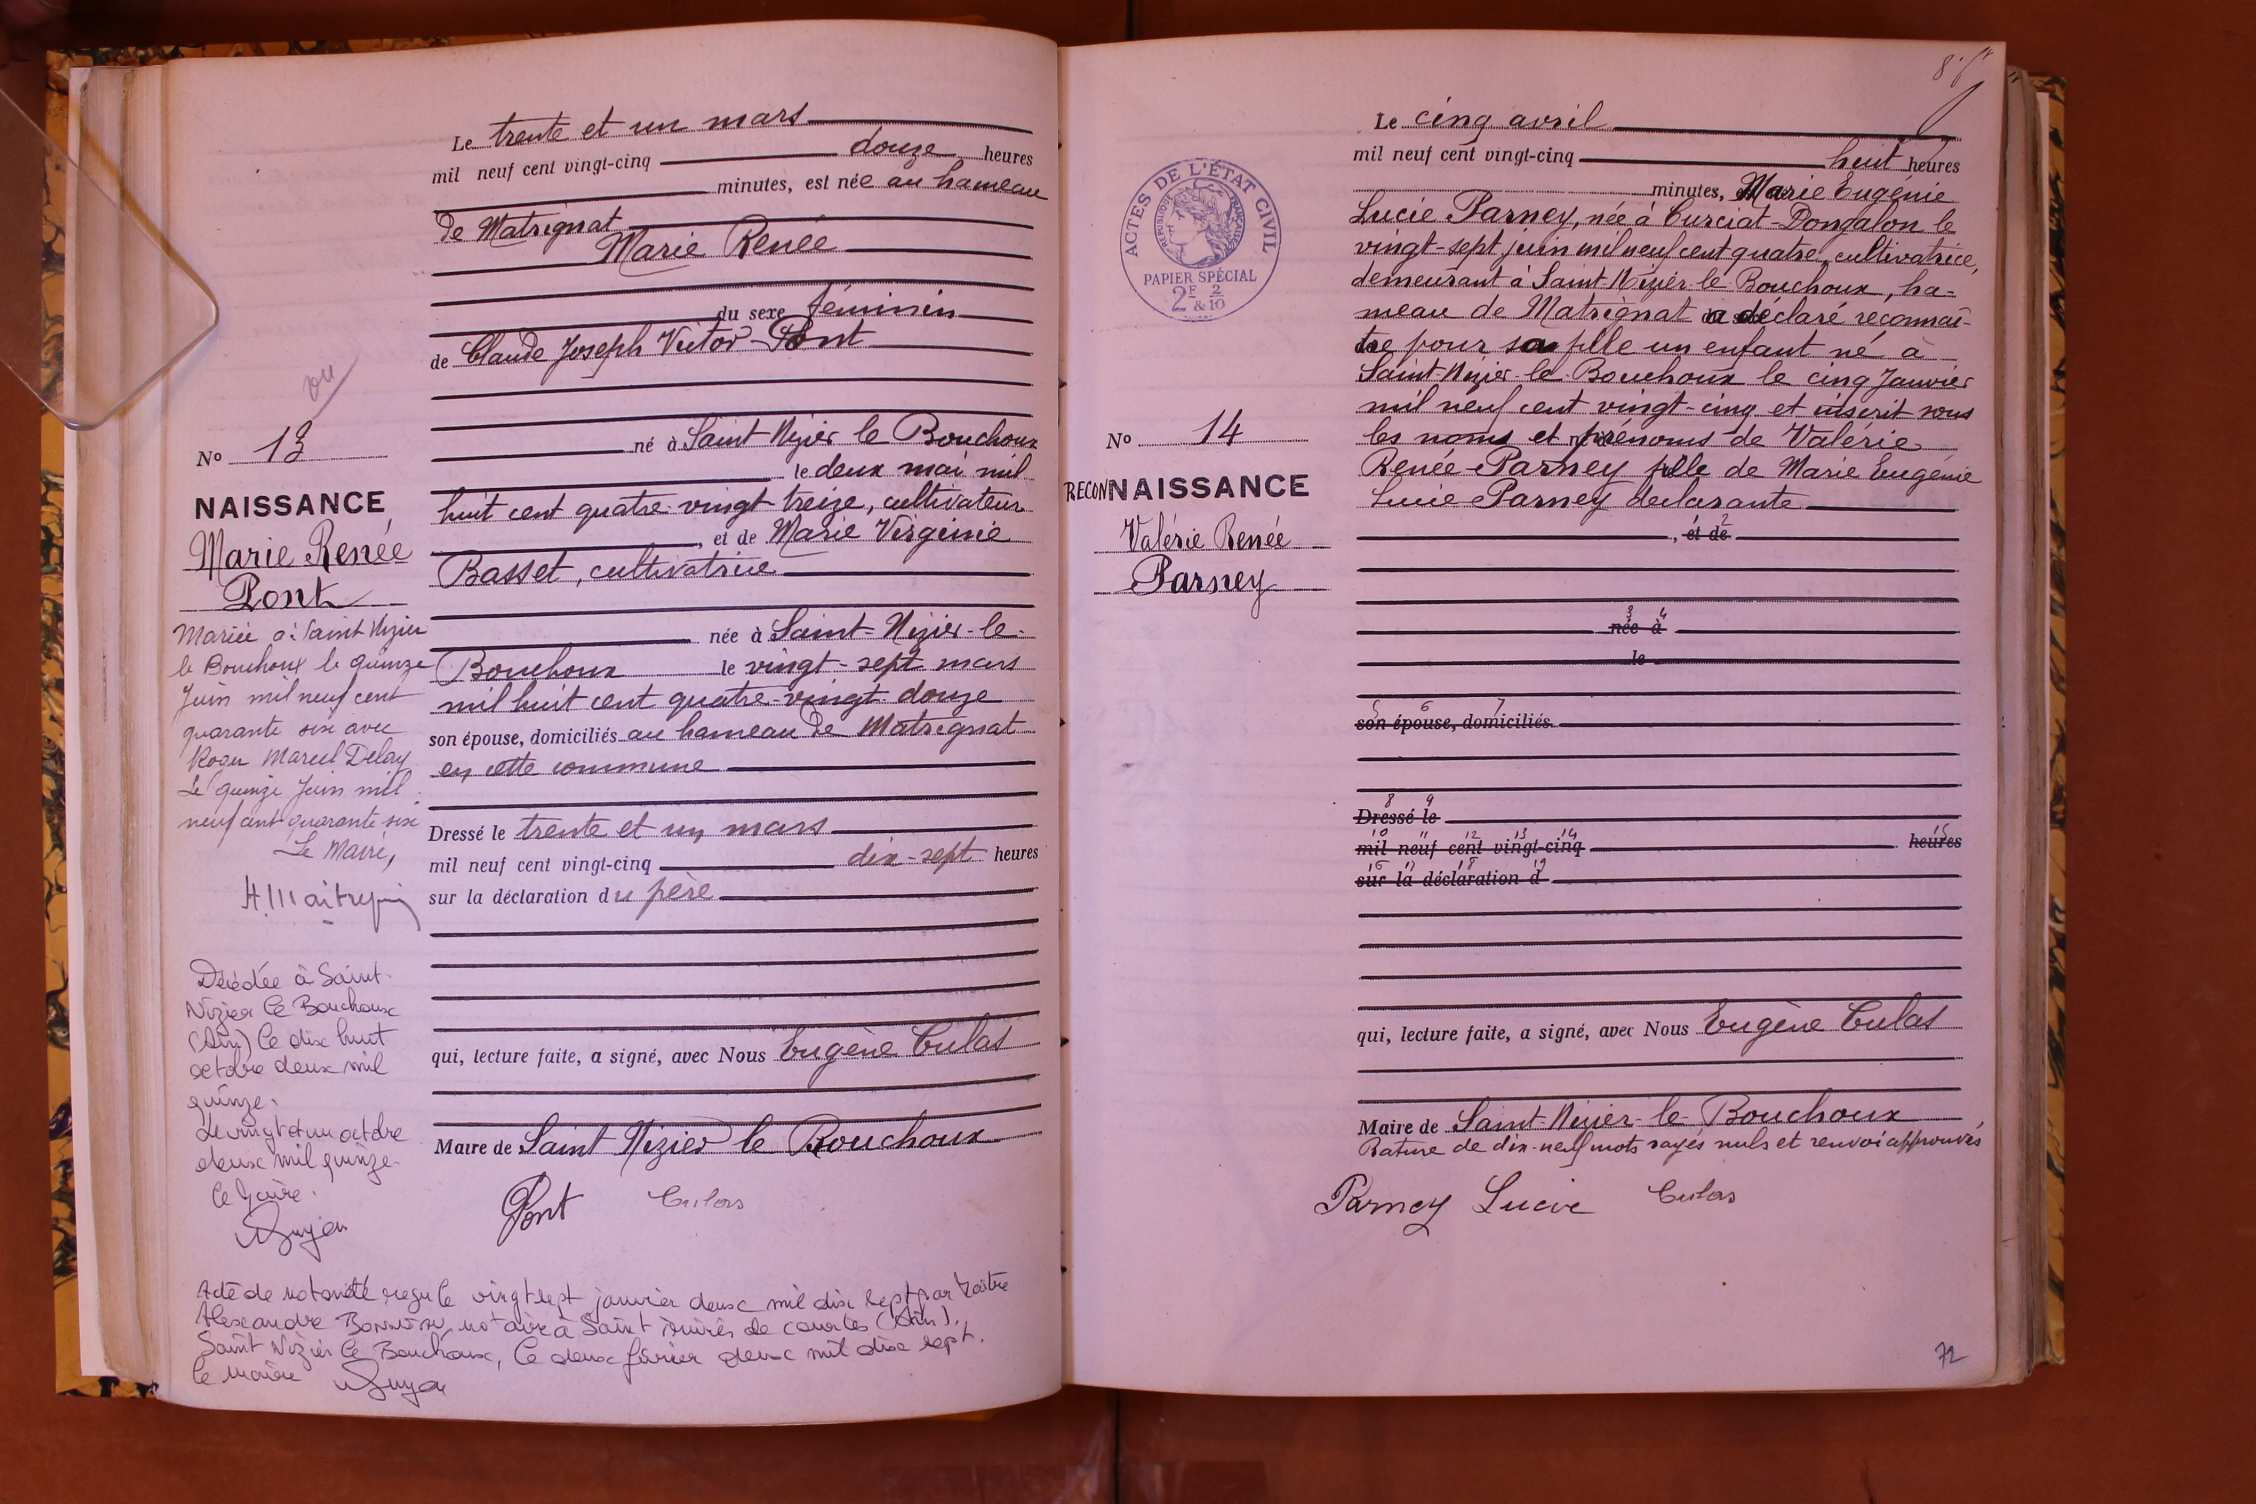 Le trente et un mars
mil neuf cent vingt-cinq douze heures
minutes, est née au hameau
de Matrignat
Marie Renée
du sexe féminin
de Claude Joseph Victor Pont
né à Saint Nizier le Bouchoux
le deux mai mil
huit cent quatre-vingt treize, cultivateur
, et de Marie Virginie
Basset, cultivatrice
née à Saint-Nizier-le-
Bouchoux le vingt-sept mars
mil huit cent quatre-vingt-douze
son épouse, domiciliés au hameau de Matrignat
en cette commune
Dressé le trente et un mars
mil neuf cent vingt-cinq dix-sept heures
sur la déclaration du père
qui, lecture faite, a signé, avec Nous Eugène Culas
Maire de Saint Nizier le Bouchoux
Pont Culas
vu
No 13
NAISSANCE
Marie Renée
Pont
Mariée à Saint Nizier
le Bouchoux le quinze
Juin mil neuf cent
quarante six avec
Roger Marcel Delay
Le quinze Juin mil
neuf cent quarante six
Le Maire,
Décédée à Saint-
Nizier le Bouchoux
(Ain) le dix huit
octobre deux mil
quinze.
Le vingt et un octobre
deux mil quinze.
Le Maire.
Acte de notoriété reçu le vingt sept janvier deux mil dix sept par Maître
Alexandre notaire à Saint de Courtes (Ain).
Saint Nizier le Bouchoux, le deux février deux mil dix sept.
le maire
Le cinq avril
mil neuf cent vingt-cinq huit heures
minutes, Marie Eugénie
Lucie Parney, née à Curciat-Dongalon le
vingt-sept juin mil neuf cent quatre, cultivatrice,
demeurant à Saint-Nizier-le-Bouchoux, ha-
meau de Matrignat a déclaré reconnaî-
tre pour sa fille un enfant né à
Saint-Nizier-le-Bouchoux le cinq Janvier
mil neuf cent vingt-cinq et inscrit sous
les noms et prénoms de Valérie
Renée Parney fille de Marie Eugénie
Lucie Parney déclarante
1 2
, et de
3 4
née à
le
5 6 7
son épouse, domiciliés
8 9
Dressé le
10 11 12 13 14 15
mil neuf cent vingt-cinq heures
16 17 18 19
sur la déclaration d
qui, lecture faite, a signé, avec Nous Eugène Culas
Maire de Saint-Nizier-le-Bouchoux
Rature de dix-neuf mots rayés nuls et renvoi approuvés
Parney Lucie Culas
ACTES DE L'ÉTAT CIVIL
RÉPUBLIQUE FRANÇAISE
PAPIER SPÉCIAL
2F & 2/10
No 14
RECONNAISSANCE
Valérie Renée
Parney
72